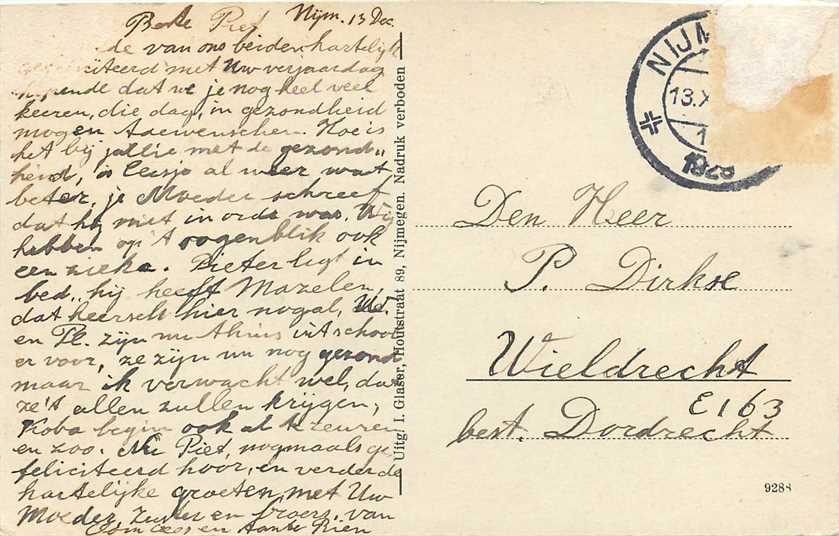 Nijm. 13 Dec
Beste Piet
de van ons beiden hartelijk
gefeliciteerd met Uw verjaardag
hopende dat we je nog heel veel
keeren, die dag, in gezondheid
mogen toewenschen. Hoe is
het bij jullie met de gezond„
heid, is Ceesje al weer wat
beter, je Moeder schreef
dat hij niet in orde was. Wij
hebben op 't oogenblik ook
een zieke. Pieter ligt in
bed, hij heeft Mazelen,
dat heerscht hier nogal,
en Pl. zijn nu thuis uit school
er voor, ze zijn nu nog gezond
maar ik verwacht wel, dat
ze 't allen zullen krijgen,
Koba begin ook al te zeuren
en zoo. Nu Piet, nogmaals ge„
feliciteerd hoor, en verder de
hartelijke groeten met Uw
Moeder, Zusters en broers, van
Oom Cees en Tante Rien
Uitg. I. Glaser, Houtstraat 89, Nijmegen. Nadruk verboden
NIJM
13.X
1
1928
Den Heer
P. Dirkse
Wieldrecht
E 163
best. Dordrecht
9288